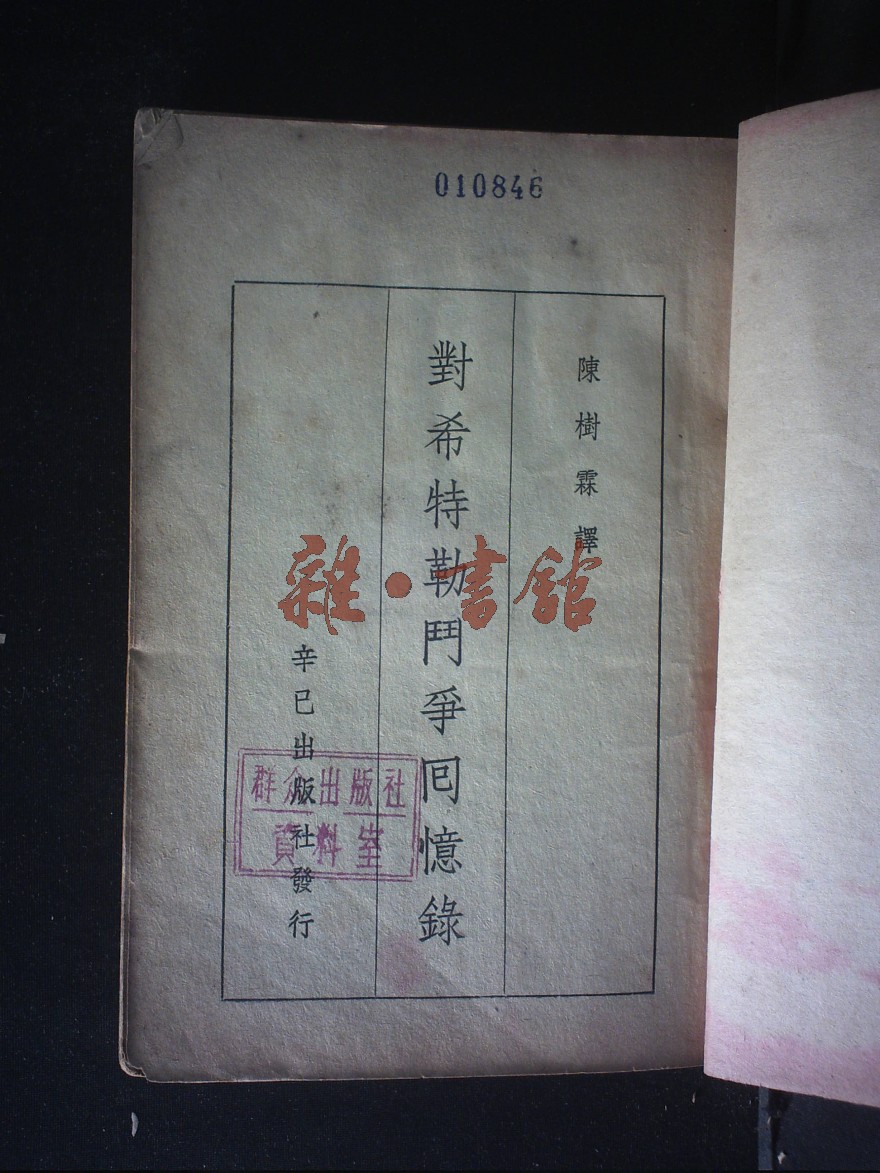 010846
陳樹霖譯
對希特勒鬥爭囘憶錄
辛巳出版社發行
群众出版社
資料室
雜·書館